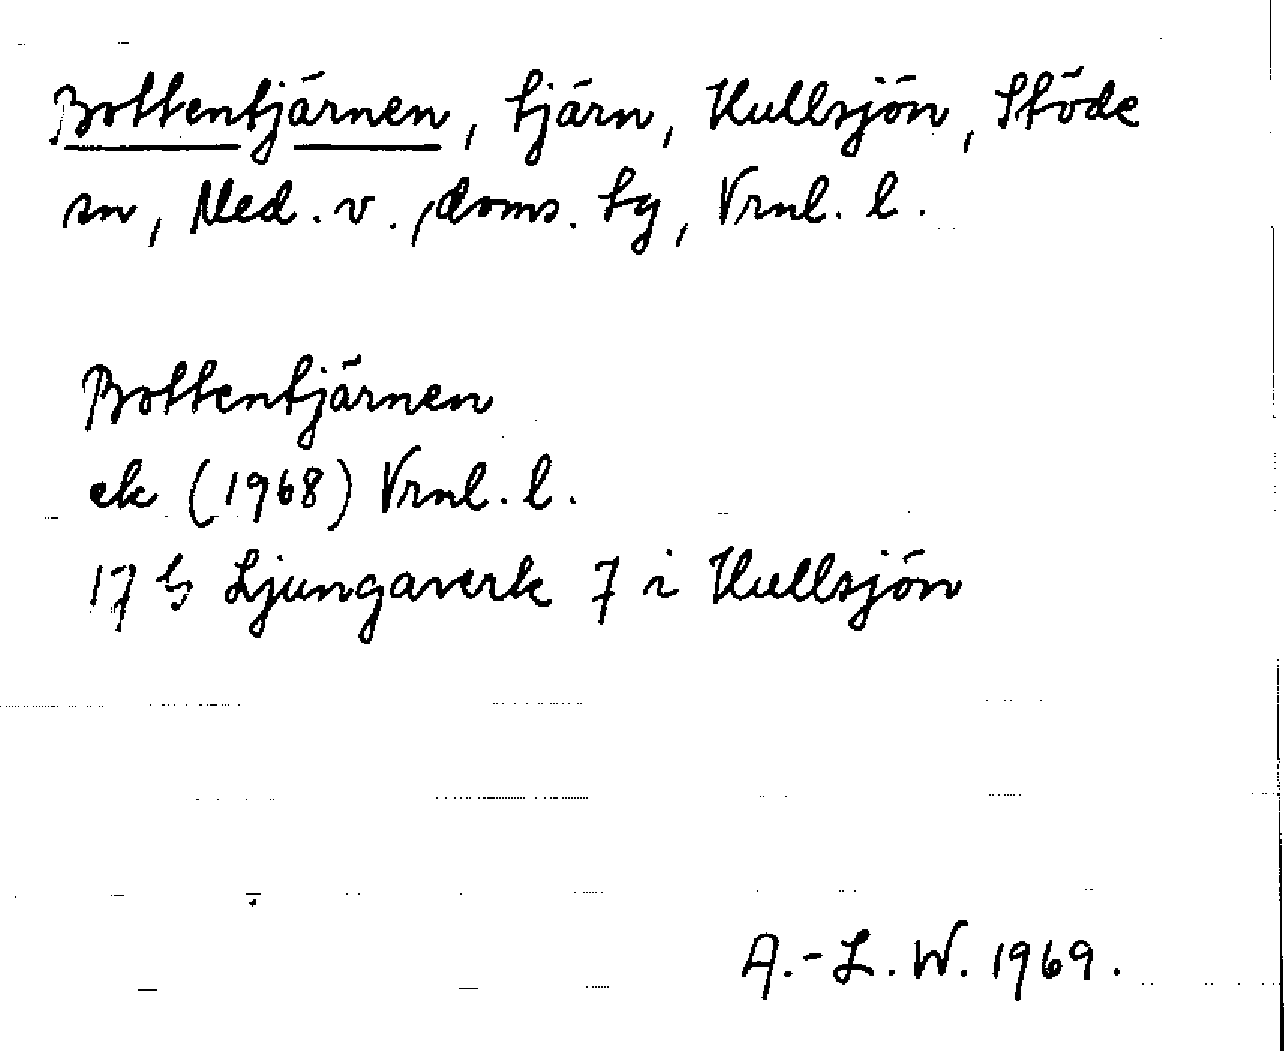 Bottentjärnen, tjärn, Hullsjön, Stöde
sn, Med. v. doms. tg, Vrnl. l.
Bottentjärnen
ek (1968) Vrnl. l.
17 G Ljungaverk 7 i Hullsjön
A.-L. W. 1969.